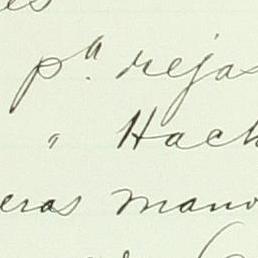 es
pª. rejas
" Hach
eras mano